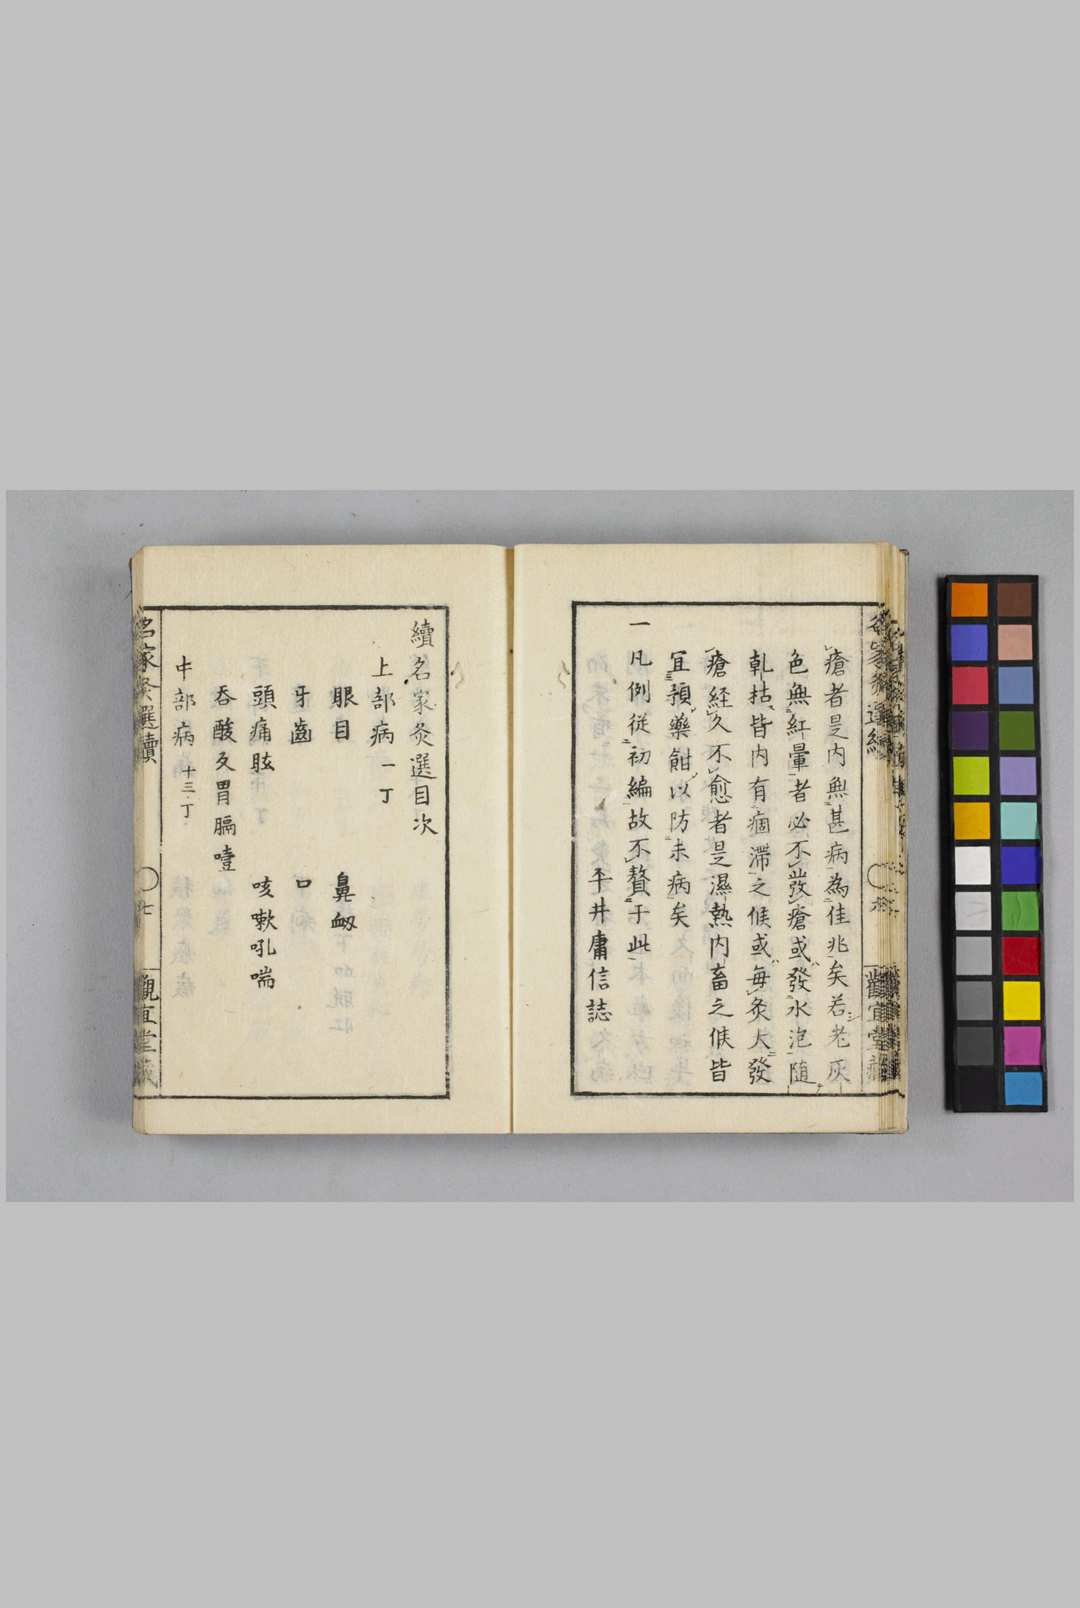 瘡者是内無甚病為佳兆矣若老灰
色無紅暈者必不發瘡或發水泡随
乹枯皆内有痼滞之候或毎灸大發
瘡経久不愈者是濕熱内畜之候皆
冝預藥餌以防未病矣
一凡例従初編故不贅于此
平井庸信誌
續名家灸選目次
上部病 一丁
眼目 鼻衂
牙齒 口
頭痛眩 咳嗽吼喘
吞酸及胃膈噎
中部病 十三丁
名家灸選續 七 觀宜堂藏